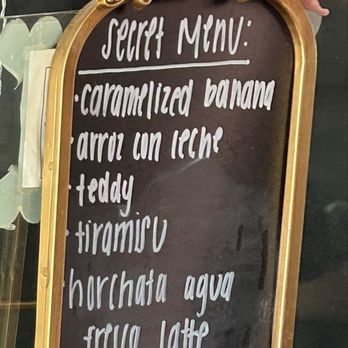 Secret Menu:
·caramelized banana
·arroz con leche
·teddy
·tiramisu
·horchata agua
fresca latte